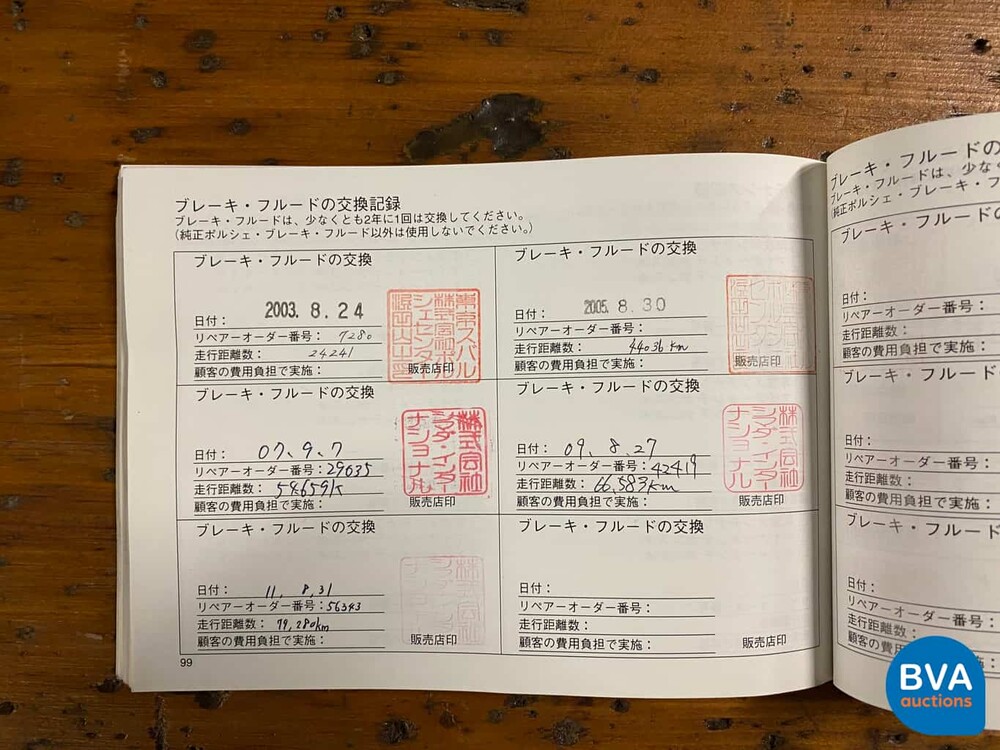 ブレーキ・フルードの交換記録
ブレーキ・フルードは、少なくとも2年に1回は交換してください。
(純正ポルシェ・ブレーキ・フルード以外は使用しないでください。)
ブレーキ・フルードの交換
日付： 2003. 8. 24
リペアーオーダー番号： 7280
走行距離数： 24241
顧客の費用負担で実施：
販売店印
ブレーキ・フルードの交換
日付： 2005. 8. 30
リペアーオーダー番号：
走行距離数： 44036 km
顧客の費用負担で実施：
販売店印
ブレーキ・フルードの交換
日付： 07. 9. 7
リペアーオーダー番号：29035
走行距離数： 54.659k
顧客の費用負担で実施：
株式会社
シマダ・インター
ナショナル
販売店印
ブレーキ・フルードの交換
日付： 09. 8. 27
リペアーオーダー番号：42419
走行距離数： 66,583km
顧客の費用負担で実施：
株式会社
シマダ・インター
ナショナル
販売店印
ブレーキ・フルードの交換
日付： 11. 8. 31
リペアーオーダー番号：56343
走行距離数： 79,280km
顧客の費用負担で実施：
販売店印
ブレーキ・フルードの交換
日付：
リペアーオーダー番号：
走行距離数：
顧客の費用負担で実施：
販売店印
99
ブレーキ・フルードの
ブレーキ・フルードは、少な
(純正ポルシェ・ブレーキ・フ
ブレーキ・フルード
日付：
リペアーオーダー番号：
走行距離数：
顧客の費用負担で実施：
ブレーキ・フルード
日付：
リペアーオーダー番号：
走行距離数：
顧客の費用負担で実施：
ブレーキ・フルード
日付：
リペアーオーダー番号：
走行距離数：
顧客の費用
BVA
auctions